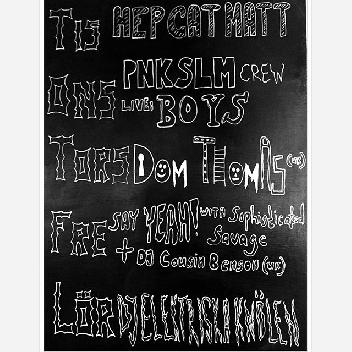 TIS HEPCAT MATT
ONS PNKSLM CREW
LIVE: BOYS
TORS DOM THOMAS (UK)
FRE SAY YEAH! WITH Sophisticated
Savage
+ DJ Cousin Benson (UK)
LÖR DJ ELEKTRISKA KNÖLEN